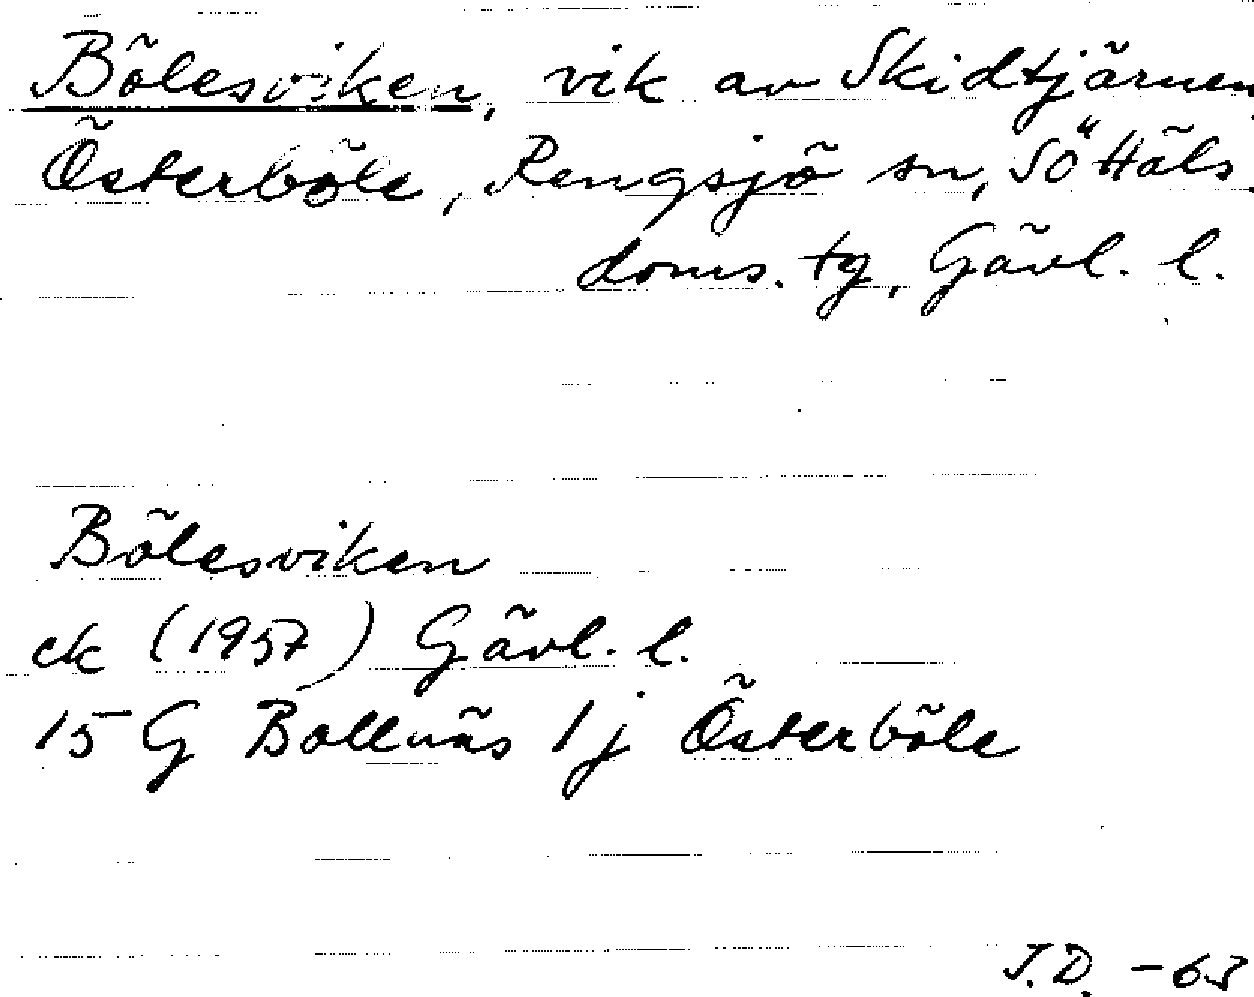 Bölesviken, vik av Skidtjärnen
Österböle, Rengsjö sn, Sö Häls.
doms. tg, Gävl. l.
Bölesviken
ek (1957) Gävl. l.
15 G Bollnäs 1j Österböle
J.D. -63